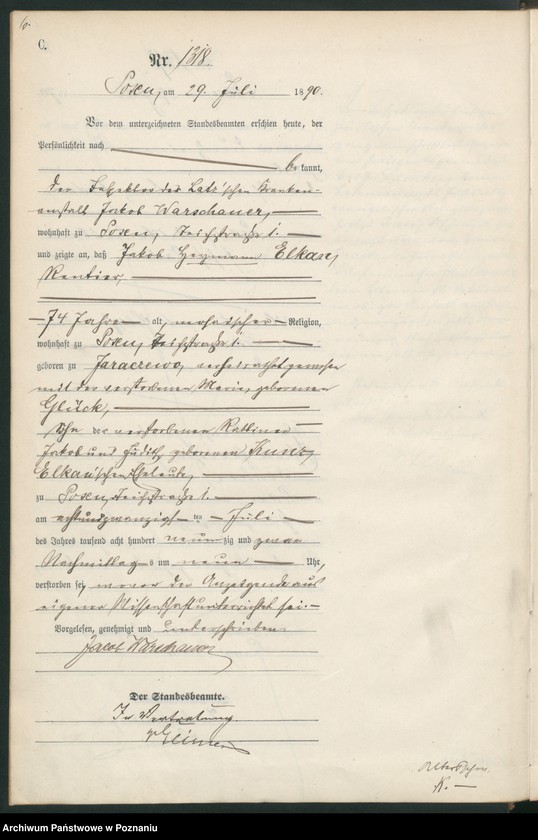 C.
Nr. 1318.
Posen, am 29. Juli 1890.
Vor dem unterzeichneten Standesbeamten erschien heute, der
Persönlichkeit nach
be kannt,
der Inspektor der Latz'schen Kranken-
anstalt Jakob Warschauer,
wohnhaft zu Posen, Teichstraße 1.
und zeigte an, daß Jakob Heymann Elkan,
Rentier,
74 Jahre alt, mosaischer Religion,
wohnhaft zu Posen, Teichstraße 1.
geboren zu Jaraczewo, verheirathet gewesen
mit der verstorbenen Marie, geborenen
Glück,
Sohn der verstorbenen
Jakob und Judith, geborenen
Elkan'schen Eheleute,
zu Posen, Teichstraße 1.
am achtundzwanzigsten Juli
des Jahres tausend acht hundert neunzig und zwar
Nachmittags um neun Uhr,
verstorben sei, wovon der Anzeigende aus
eigener Wissenschaft unterrichtet sei.
Vorgelesen, genehmigt und unterschrieben
Jacob Warschauer
Der Standesbeamte.
In Vertretung.
K.
Archiwum Państwowe w Poznaniu